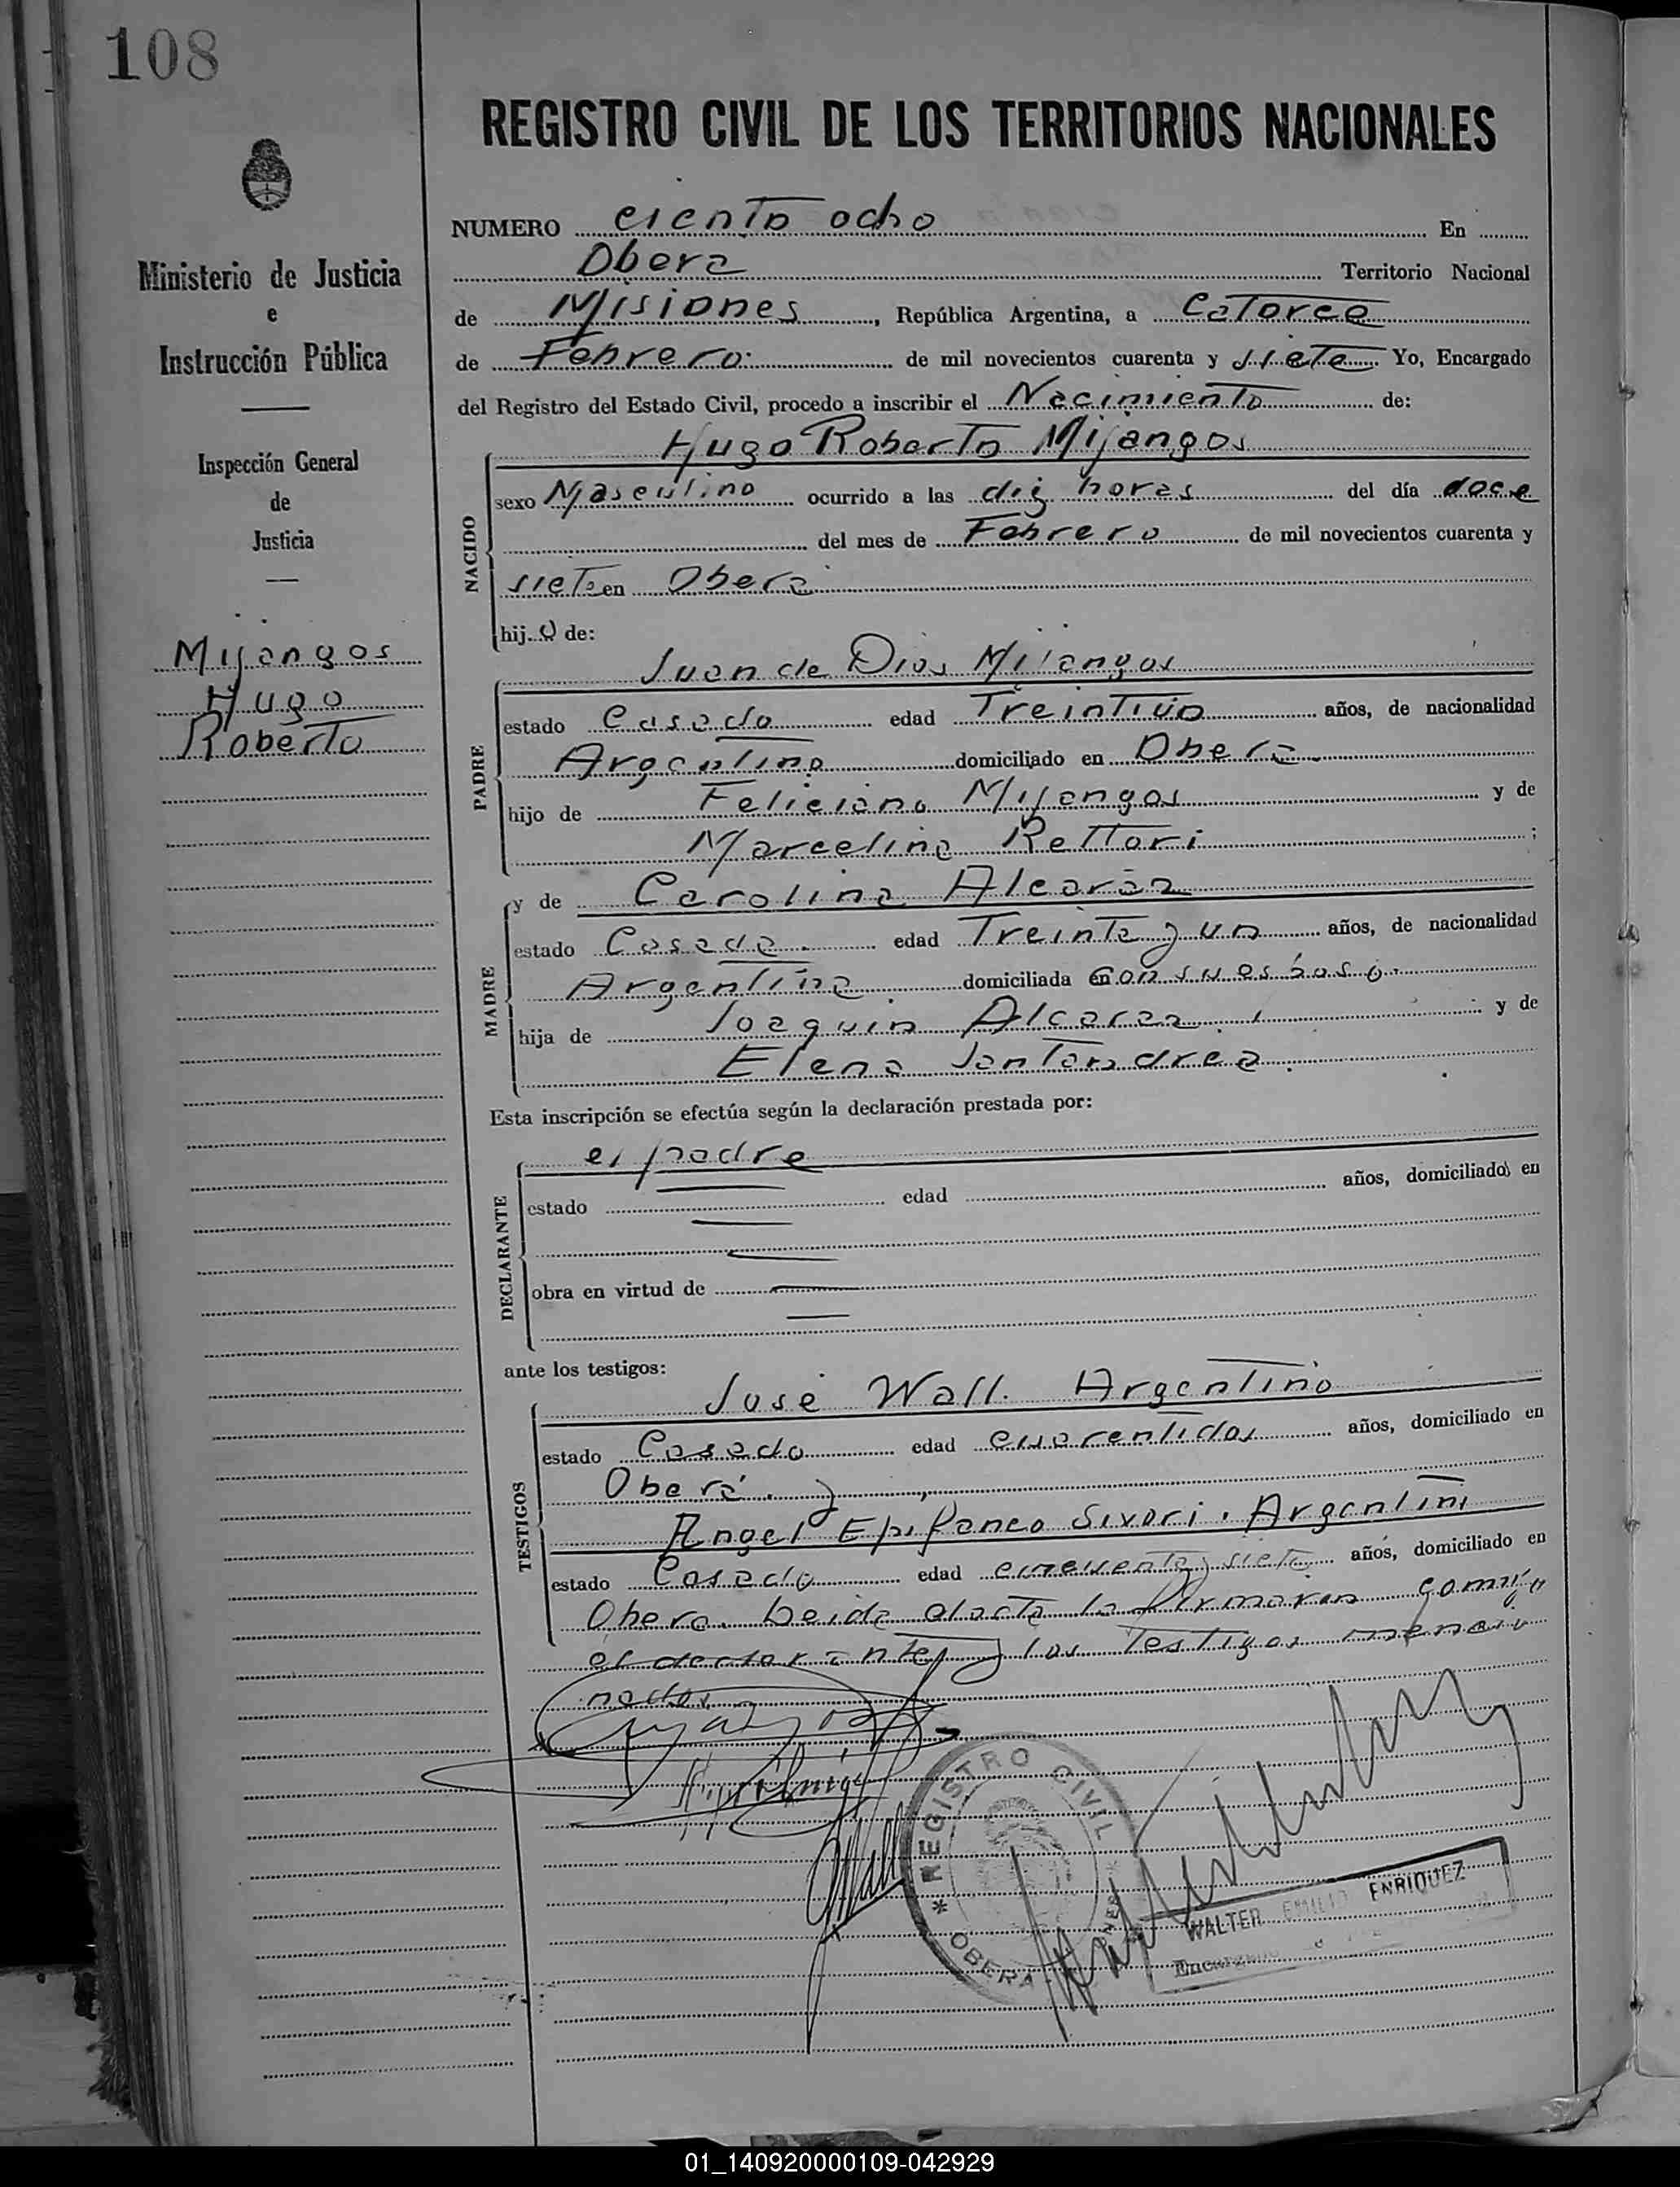 108
REGISTRO CIVIL DE LOS TERRITORIOS NACIONALES
Ministerio de Justicia
e
Instrucción Pública
Inspección General
de
Justicia
Mijangos
Hugo
Roberto
NUMERO ciento ocho En
Obera Territorio Nacional
de Misiones, República Argentina, a Catorce
de Febrero de mil novecientos cuarenta y siete Yo, Encargado
del Registro del Estado Civil, procedo a inscribir el Nacimiento de:
Hugo Roberto Mijangos
NACIDO
sexo Masculino ocurrido a las diz horas del día doce
del mes de Febrero de mil novecientos cuarenta y
siete en Obera
hijo de:
Juan de Dios Mijangos
PADRE
estado Casado edad Treintiún años, de nacionalidad
Argentino domiciliado en Obera
hijo de Feliciano Mijangos y de
Marcelina Rettori;
MADRE
y de Carolina Alcaráz
estado Casada. edad Treinta y un años, de nacionalidad
Argentina domiciliada en con su esposo.
hija de Joaquin Alcaraz y de
Elena Santandrea.
Esta inscripción se efectúa según la declaración prestada por:
DECLARANTE
el padre
estado edad años, domiciliado en
obra en virtud de
ante los testigos:
TESTIGOS
José Wall. Argentino
estado Casado edad cuarentidos años, domiciliado en
Oberá. y
Angel Epifaneo Sivori. Argentini
estado Casado edad cincuenta y siete años, domiciliado en
Obera. Leida el acta la firmaron conmigo
el declarante y los Testigos mencio
nados
REGISTRO CIVIL
OBERA
WALTER EMILIO ENRIQUEZ
01_140920000109-042929